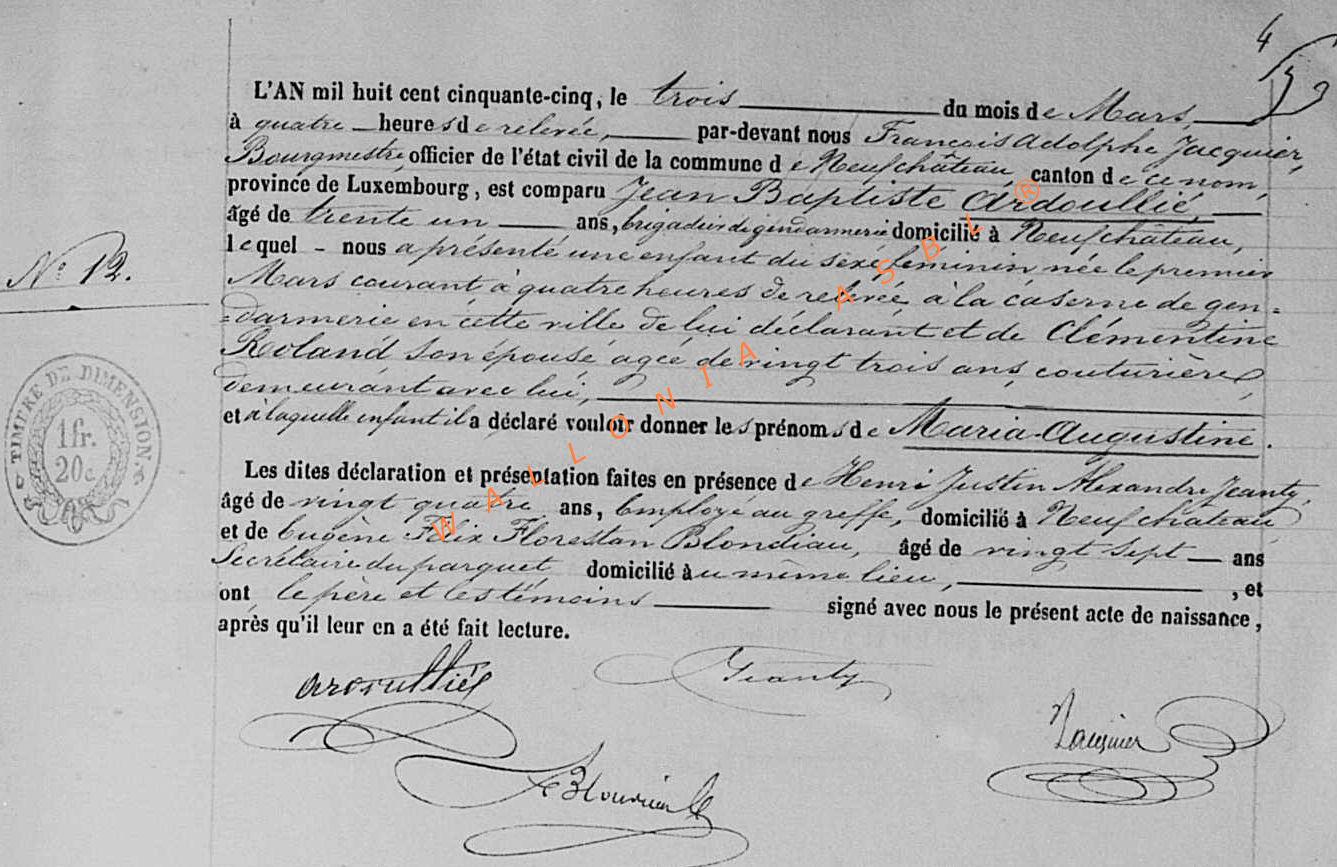 4
L'AN mil huit cent cinquante-cinq, le trois du mois de Mars,
à quatre heures de relevée, par-devant nous François Adolphe Jacquier,
Bourgmestre, officier de l'état civil de la commune de Neufchâteau, canton de ce nom,
province de Luxembourg, est comparu Jean Baptiste Ardoullié,
âgé de trente un ans, brigadier de gendarmerie domicilié à Neufchâteau,
lequel - nous a présenté une enfant du sexe féminin née le premier
Mars courant à quatre heures de relevée à la caserne de gen=
=darmerie en cette ville de lui déclarant et de Clémentine
Roland son épouse agée de vingt trois ans, couturière,
demeurant avec lui,
et à laquelle enfant il a déclaré vouloir donner les prénoms de Maria-Augustine.
Les dites déclaration et présentation faites en présence de Henri Justin Alexandre Jeanty,
âgé de vingt quatre ans, Employé au greffe, domicilié à Neufchateau
et de Eugène Félix Florestan Blondiau, âgé de vingt sept ans
Secrétaire du parquet domicilié au même lieu, , et
ont le père et les témoins signé avec nous le présent acte de naissance,
après qu'il leur en a été fait lecture.
N° 12.
TIMBRE DE DIMENSION.
1 fr.
20c
Ardoullié
Jeanty
Jacquier
Blondiau
WALLONIA ASBL ®